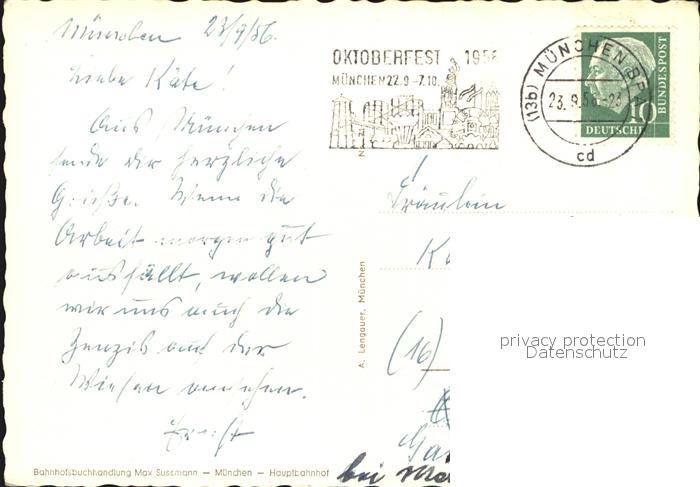 München 23/9/56.
Liebe Käte!
Aus München
sende dir herzliche
Grüße. Wenn die
Arbeit morgen gut
ausfällt, wollen
wir uns auch die
Zenzis auf der
Wiesen ansehen.
Ernst
OKTOBERFEST 1956
MÜNCHEN 22.9.-7.10.
(13b) MÜNCHEN BP
23.9.56-23
cd
10
DEUTSCHE
BUNDESPOST
Fräulein
(16)
bei
A. Lengauer, München
privacy protection
Datenschutz
Bahnhofsbuchhandlung Max Sussmann — München — Hauptbahnhof